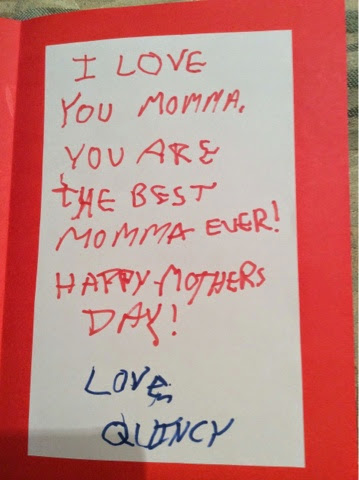 I LOVE
YOU MOMMA.
YOU ARE
THE BEST
MOMMA EVER!
HAPPY MOTHERS
DAY!
LOVE,
QUINCY